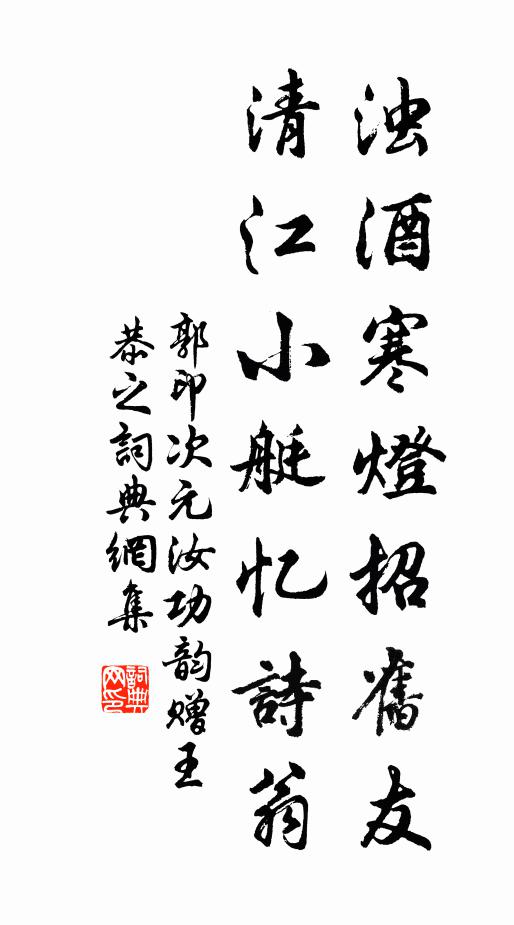 浊酒寒燈招舊友
清江小艇忆詩翁
郭印次元汝功韵赠王
恭之詞典網集
詞典网印